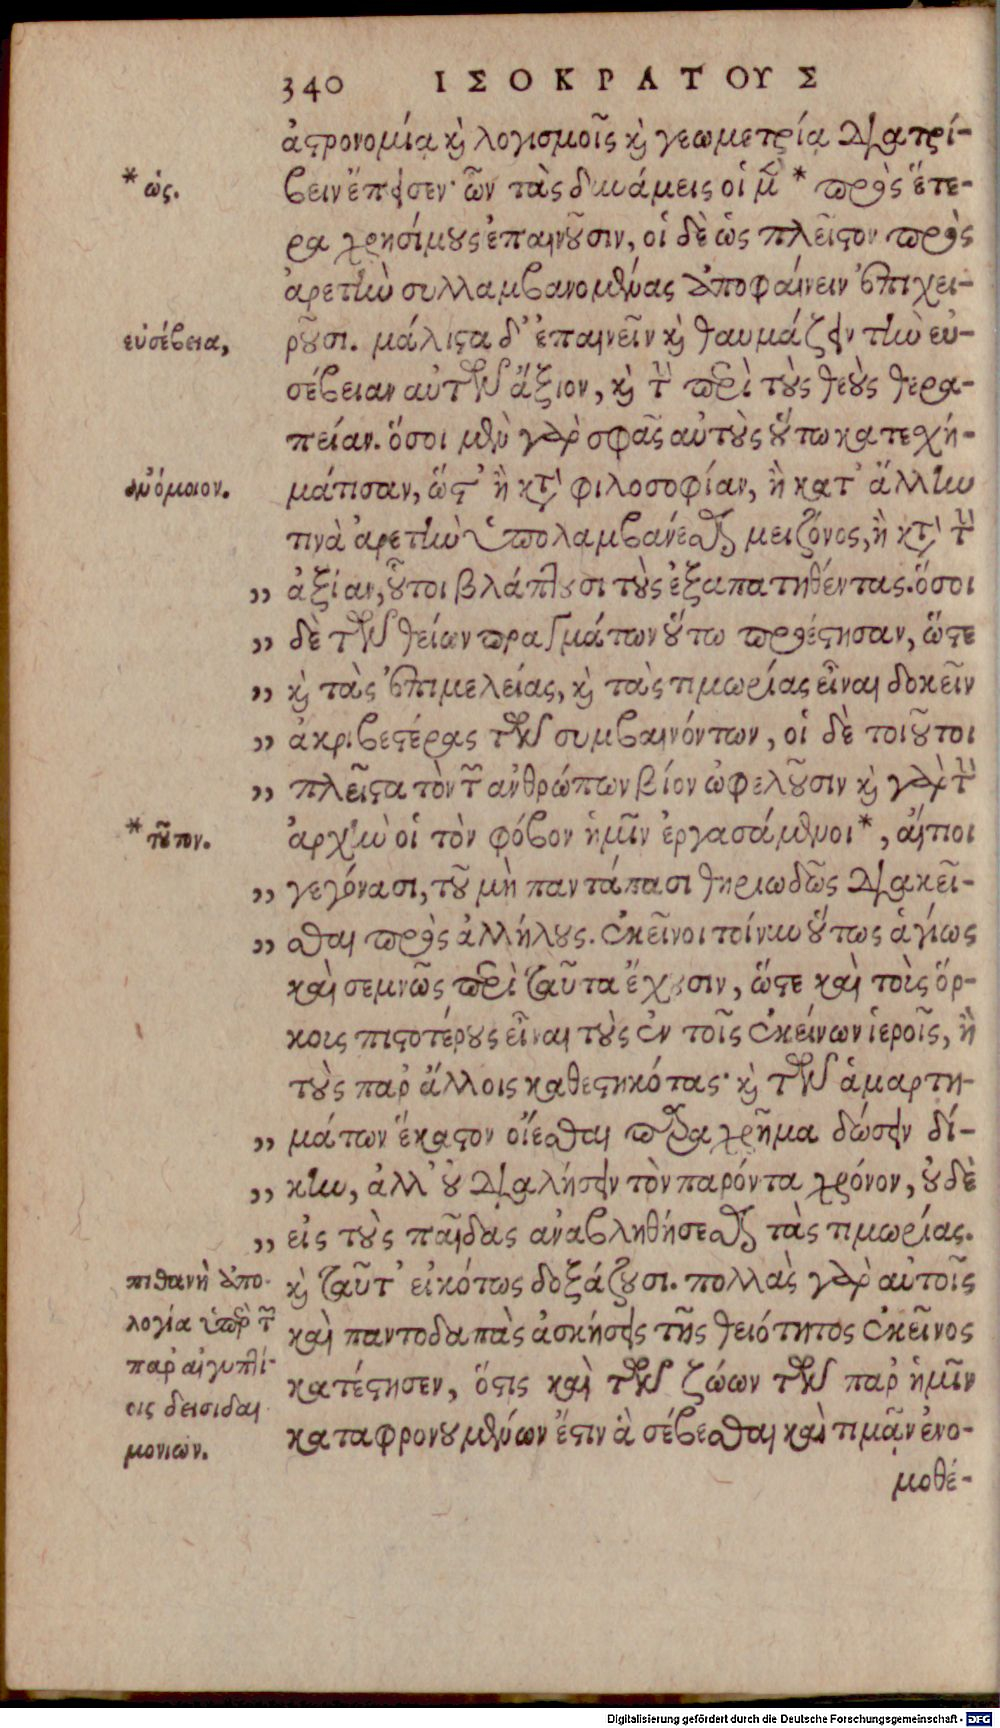 340 ΙΣΟΚΡΑΤΟΥΣ
ἀστρονομίᾳ καὶ λογισμοῖς καὶ γεωμετρίᾳ διατρί-
* ὡς.
βειν ἔπεισεν· ὧν τὰς δυνάμεις οἱ μὲν * πρὸς ἕτε-
ρα χρησίμους ἐπαινοῦσιν, οἱ δὲ ὡς πλεῖστον πρὸς
ἀρετὴν συλλαμβανομένας ἀποφαίνειν ἐπιχει-
εὐσέβεια,
ροῦσι. μάλιστα δ' ἐπαινεῖν καὶ θαυμάζειν τὴν εὐ-
σέβειαν αὐτῶν ἄξιον, καὶ τὴν περὶ τοὺς θεοὺς θερα-
πείαν. ὅσοι μὲν γὰρ σφᾶς αὐτοὺς οὕτω κατεχη-
ἀνόμοιον.
μάτισαν, ὥστ' ἢ κατὰ φιλοσοφίαν, ἢ κατ' ἄλλην
τινὰ ἀρετὴν ὑπολαμβάνεσθαι μειζόνως, ἢ κατὰ τὴν
„ ἀξίαν, οὗτοι βλάπτουσι τοὺς ἐξαπατηθέντας. ὅσοι
„ δὲ τῶν θείων πραγμάτων οὕτω προέστησαν, ὥστε
„ καὶ τὰς ἐπιμελείας, καὶ τὰς τιμωρίας εἶναι δοκεῖν
„ ἀκριβεστέρας τῶν συμβαινόντων, οἱ δὲ τοιοῦτοι
„ πλεῖστα τὸν τῶν ἀνθρώπων βίον ὠφελοῦσιν καὶ γὰρ τὴν
* τοῦτον.
ἀρχὴν οἱ τὸν φόβον ἡμῖν ἐργασάμενοι *, αἴτιοι
„ γεγόνασι, τοῦ μὴ παντάπασι θηριωδῶς διακεῖ-
„ σθαι πρὸς ἀλλήλους. ἐκεῖνοι τοίνυν οὕτως ἁγίως
καὶ σεμνῶς περὶ ταῦτα ἔχουσιν, ὥστε καὶ τοὶς ὅρ-
κοις πιστοτέρους εἶναι τοὺς ἐν τοῖς ἐκείνων ἱεροῖς, ἢ
τοὺς παρ' ἄλλοις καθεστηκότας· καὶ τῶν ἁμαρτη-
„ μάτων ἕκαστον οἴεσθαι παραχρῆμα δώσειν δί-
„ κην, ἀλλ' οὐ διαλήσειν τὸν παρόντα χρόνον, οὐδὲ
„ εἰς τοὺς παῖδας ἀναβληθήσεσθαι τὰς τιμωρίας.
πιθανὴ ἀπο-
λογία ὑπὲρ τῶν
παρ' αἰγυπτί-
οις δεισιδαι
μονιῶν.
καὶ ταῦτ' εἰκότως δοξάζουσι. πολλὰς γὰρ αὐτοῖς
καὶ παντοδαπὰς ἀσκήσεις τῆς θειότητος ἐκεῖνος
κατέστησεν, ὅστις καὶ τῶν ζώων τῶν παρ' ἡμῖν
καταφρονουμένων ἔστιν ἃ σέβεσθαι καὶ τιμᾷν ἐνο-
μοθέ-
Digitalisierung gefördert durch die Deutsche Forschungsgemeinschaft - DFG